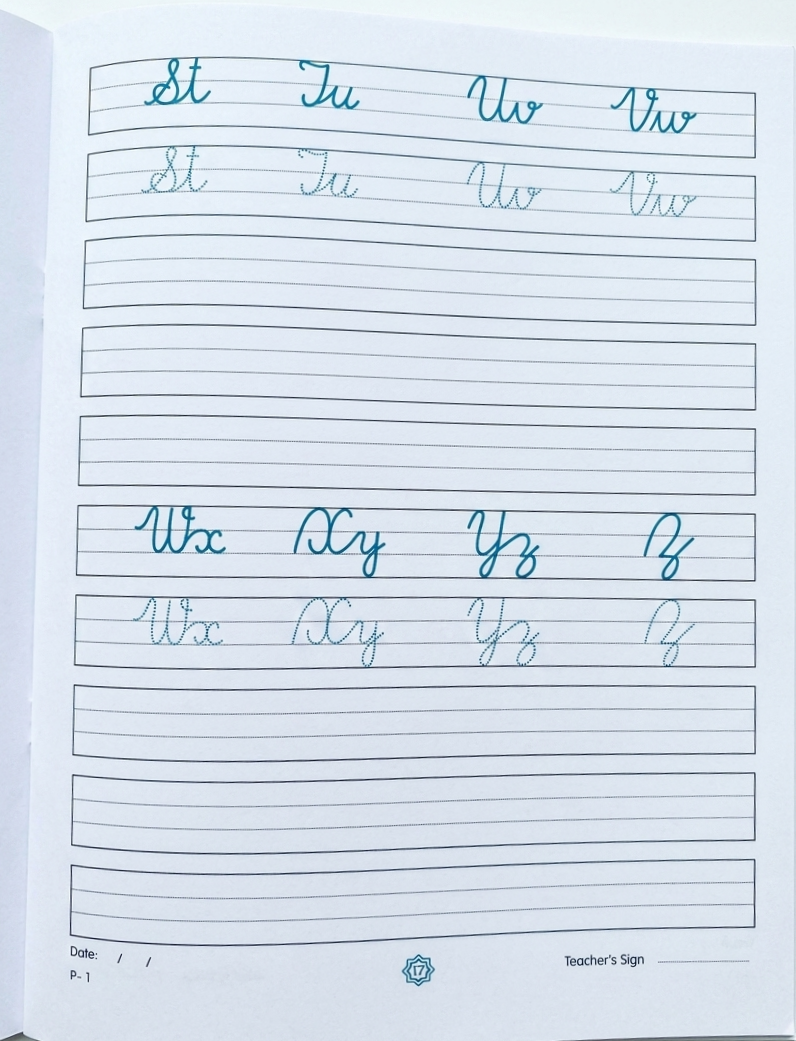 St Tu Uv Vw
St Tu Uv Vw
Wx Xy Yz Z
Wx Xy Yz Z
Date: / / Teacher's Sign
17
P- 1